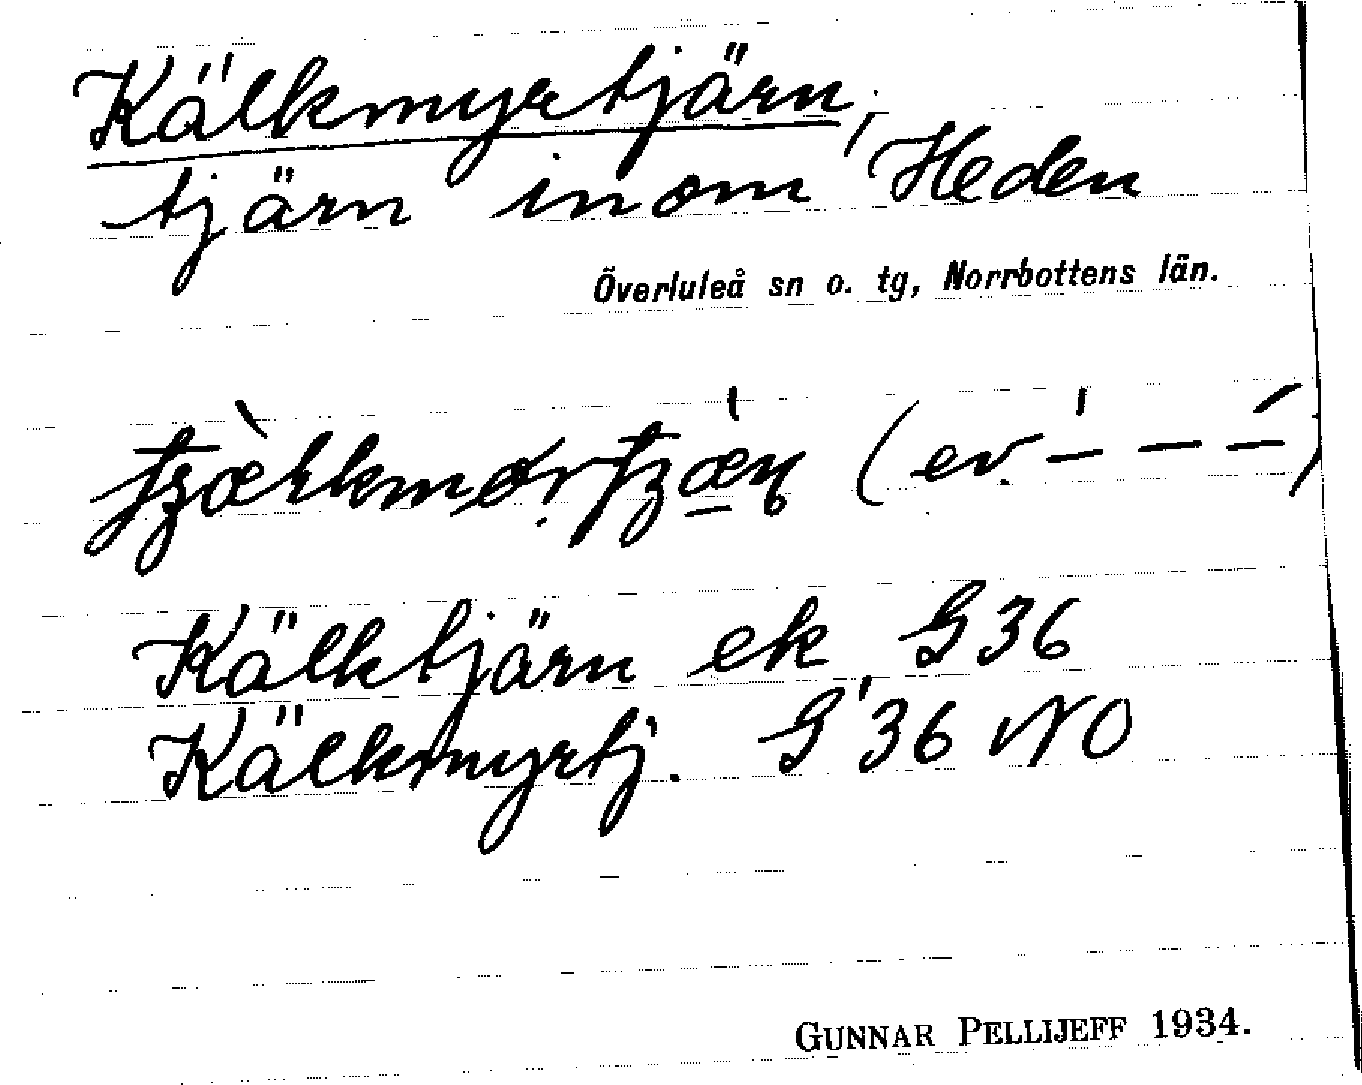 Kälkmyrtjärn,
tjärn inom Heden
Överluleå sn o. tg, Norrbottens län.
(ev. ´– – –´)
Kälktjärn ek G36
Kälkmyrtj. G'36 NO
GUNNAR PELLIJEFF 1934.